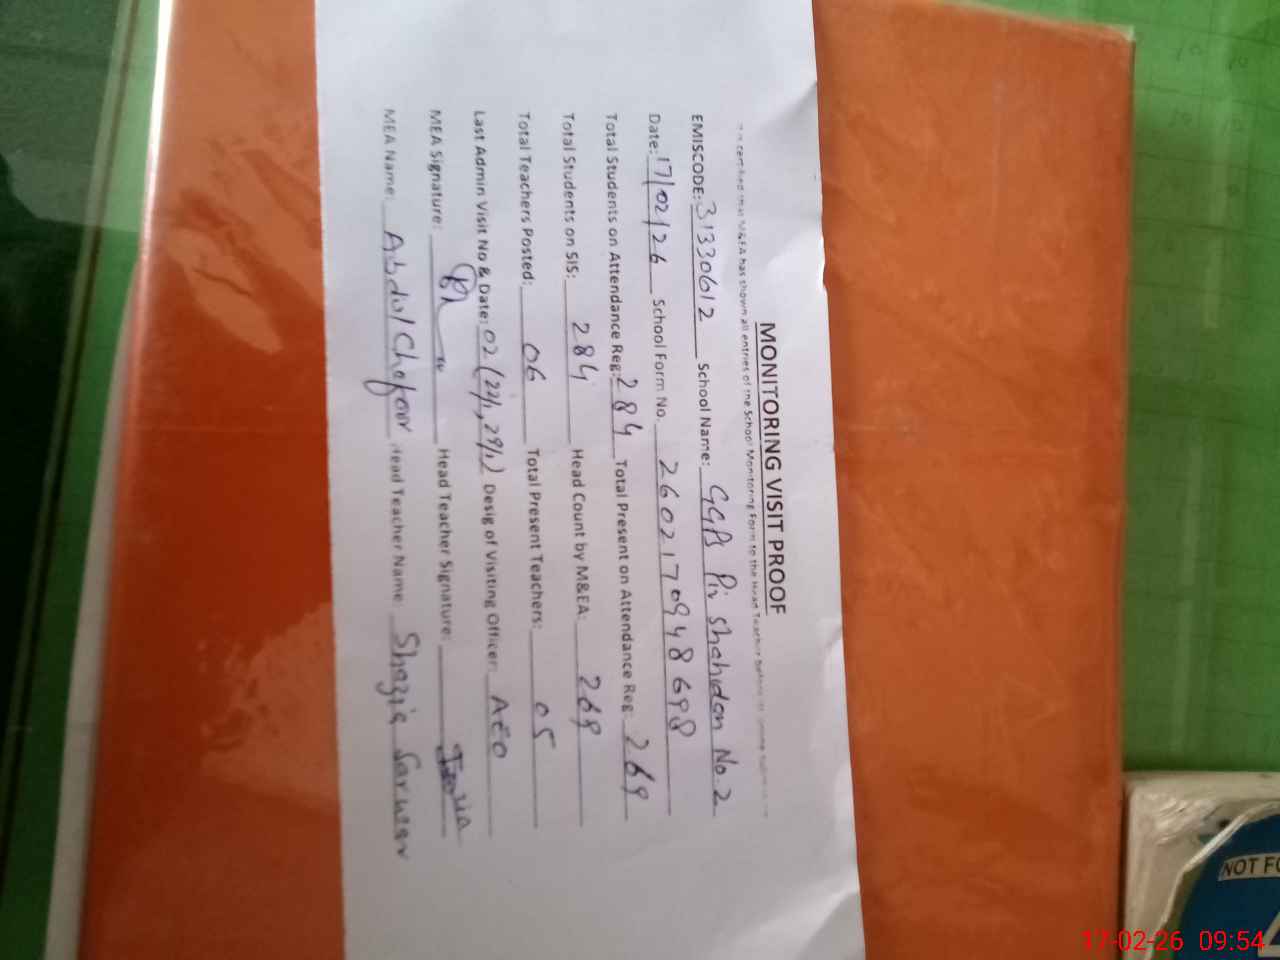 MONITORING VISIT PROOF
It is certified that M&EA has shown all entries of the School Monitoring Form to the Head Teacher before
EMISCODE: 31330612 School Name: GGPS Pir shahidan No.2
Date: 17/02/26 School Form No. 260217094 8698
Total Students on Attendance Reg: 284 Total Present on Attendance Reg: 269
Total Students on SIS: 284 Head Count by M&EA: 269
Total Teachers Posted: 06 Total Present Teachers: 05
Last Admin Visit No & Date: 02 (22/1, 29/1) Desig of Visiting Officer: AEO
MEA Signature: Head Teacher Signature:
MEA Name: Abdul Ghafoor Head Teacher Name: Shazia Sarwar
NOT FO
17-02-26 09:54